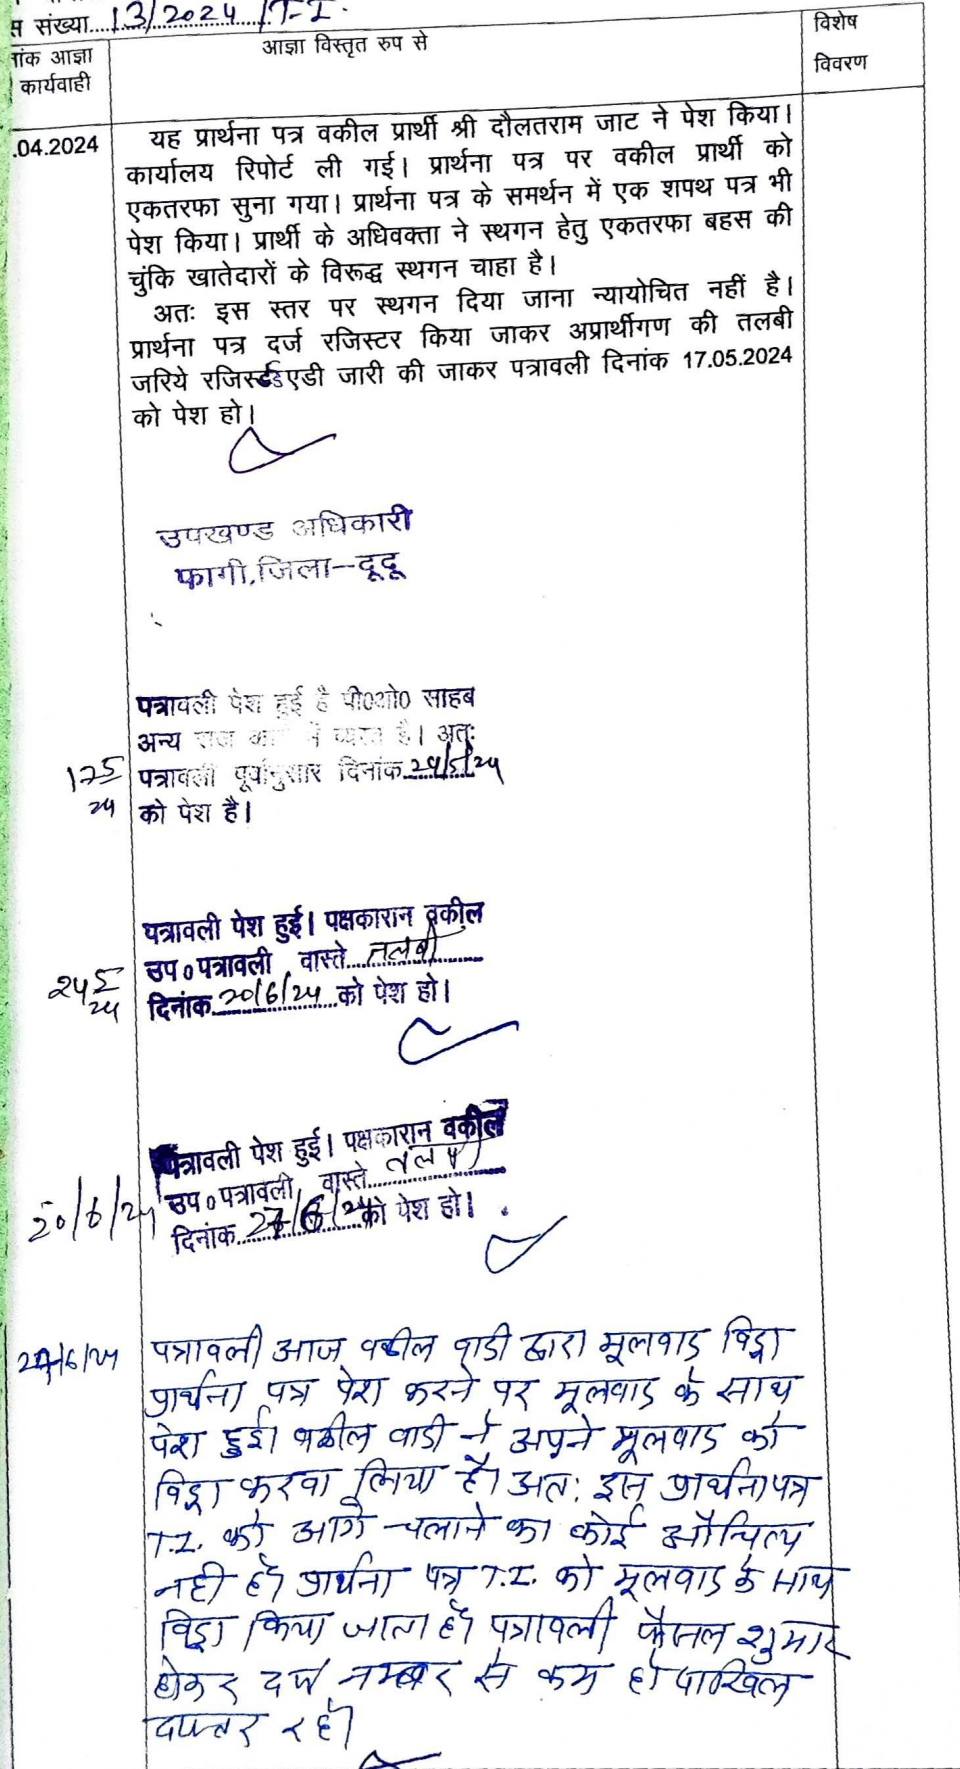 स संख्या....13/2024 /T-I.
ांक आज्ञा
कार्यवाही
आज्ञा विस्तृत रुप से
विशेष
विवरण
.04.2024
यह प्रार्थना पत्र वकील प्रार्थी श्री दौलतराम जाट ने पेश किया।
कार्यालय रिपोर्ट ली गई। प्रार्थना पत्र पर वकील प्रार्थी को
एकतरफा सुना गया। प्रार्थना पत्र के समर्थन में एक शपथ पत्र भी
पेश किया। प्रार्थी के अधिवक्ता ने स्थगन हेतु एकतरफा बहस की
चुंकि खातेदारों के विरूद्ध स्थगन चाहा है।
अतः इस स्तर पर स्थगन दिया जाना न्यायोचित नहीं है।
प्रार्थना पत्र दर्ज रजिस्टर किया जाकर अप्रार्थीगण की तलबी
जरिये रजिस्टर्ड एडी जारी की जाकर पत्रावली दिनांक 17.05.2024
को पेश हो।
उपखण्ड अधिकारी
फागी,जिला-दूदू
पत्रावली पेश हुई है पी०ओ० साहब
अन्य राज कार्य में व्यस्त है। अतः
17/5/24
पत्रावली पूर्वानुसार दिनांक 24/5/24
को पेश है।
पत्रावली पेश हुई। पक्षकारान वकील
उप० पत्रावली वास्ते तलबी
24/5/24
दिनांक 20/6/24 को पेश हो।
पत्रावली पेश हुई। पक्षकारान वकील
उप० पत्रावली वास्ते तलबी
20/6/24
दिनांक 27/6/24 को पेश हो।
27/6/24
पत्रावली आज वकील वादी द्वारा मूलवाद विड्रा
प्रार्थना पत्र पेश करने पर मूलवाद के साथ
पेश हुई। वकील वादी ने अपने मूलवाद को
विड्रा करवा लिया है। अतः इस प्रार्थनापत्र
T.I. को आगे चलाने का कोई औचित्य
नही है। प्रार्थना पत्र T.I. को मूलवाद के साथ
विड्रा किया जाता है। पत्रावली फैसल शुमार
होकर दर्ज नम्बर से कम हो दाखिल
दफ्तर रहे।